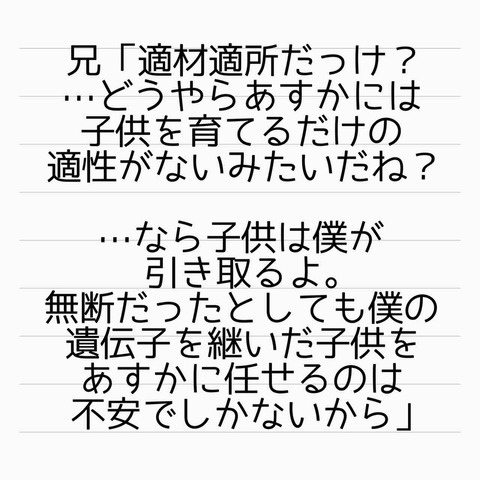 兄「適材適所だっけ？
…どうやらあすかには
子供を育てるだけの
適性がないみたいだね？
…なら子供は僕が
引き取るよ。
無断だったとしても僕の
遺伝子を継いだ子供を
あすかに任せるのは
不安でしかないから」